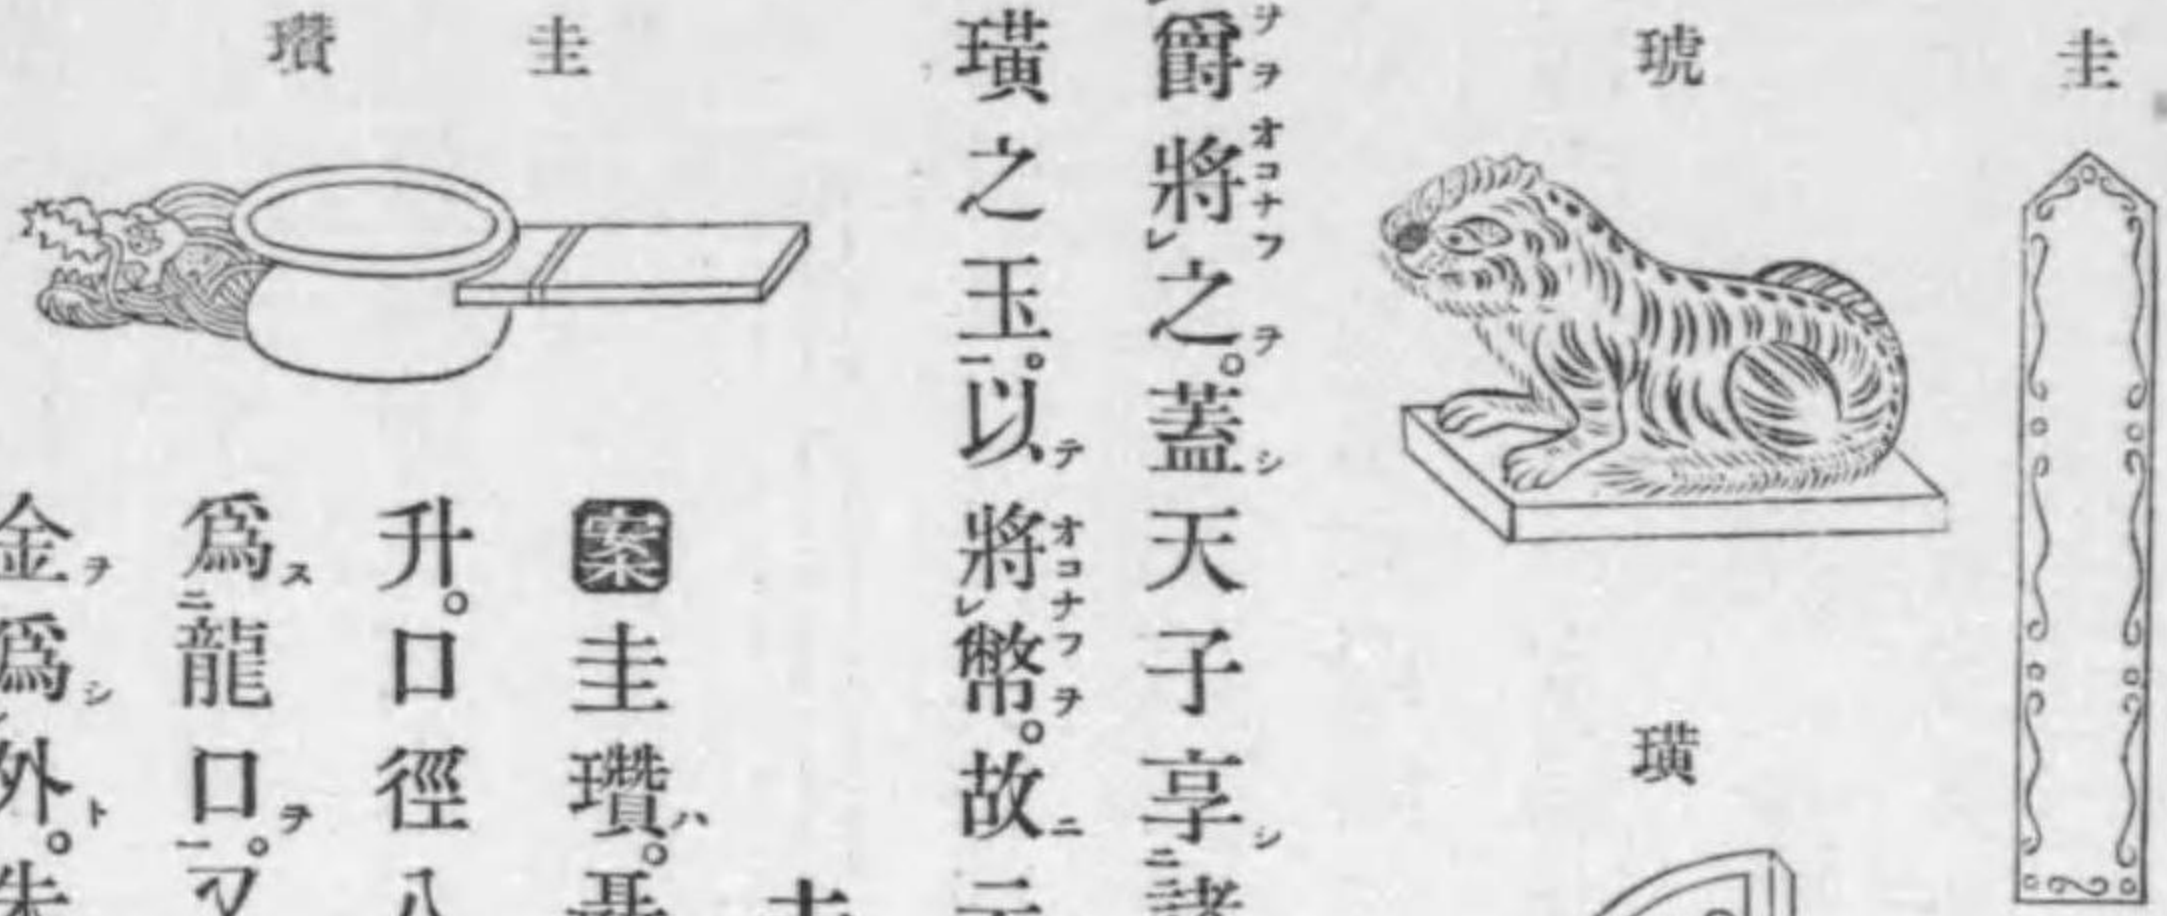 圭
琥
璜
爵將之。蓋天子享諸
璜之玉。以將幣。故云
圭瓚
案圭瓚。
升。口徑八
爲龍口。又
金爲外。朱